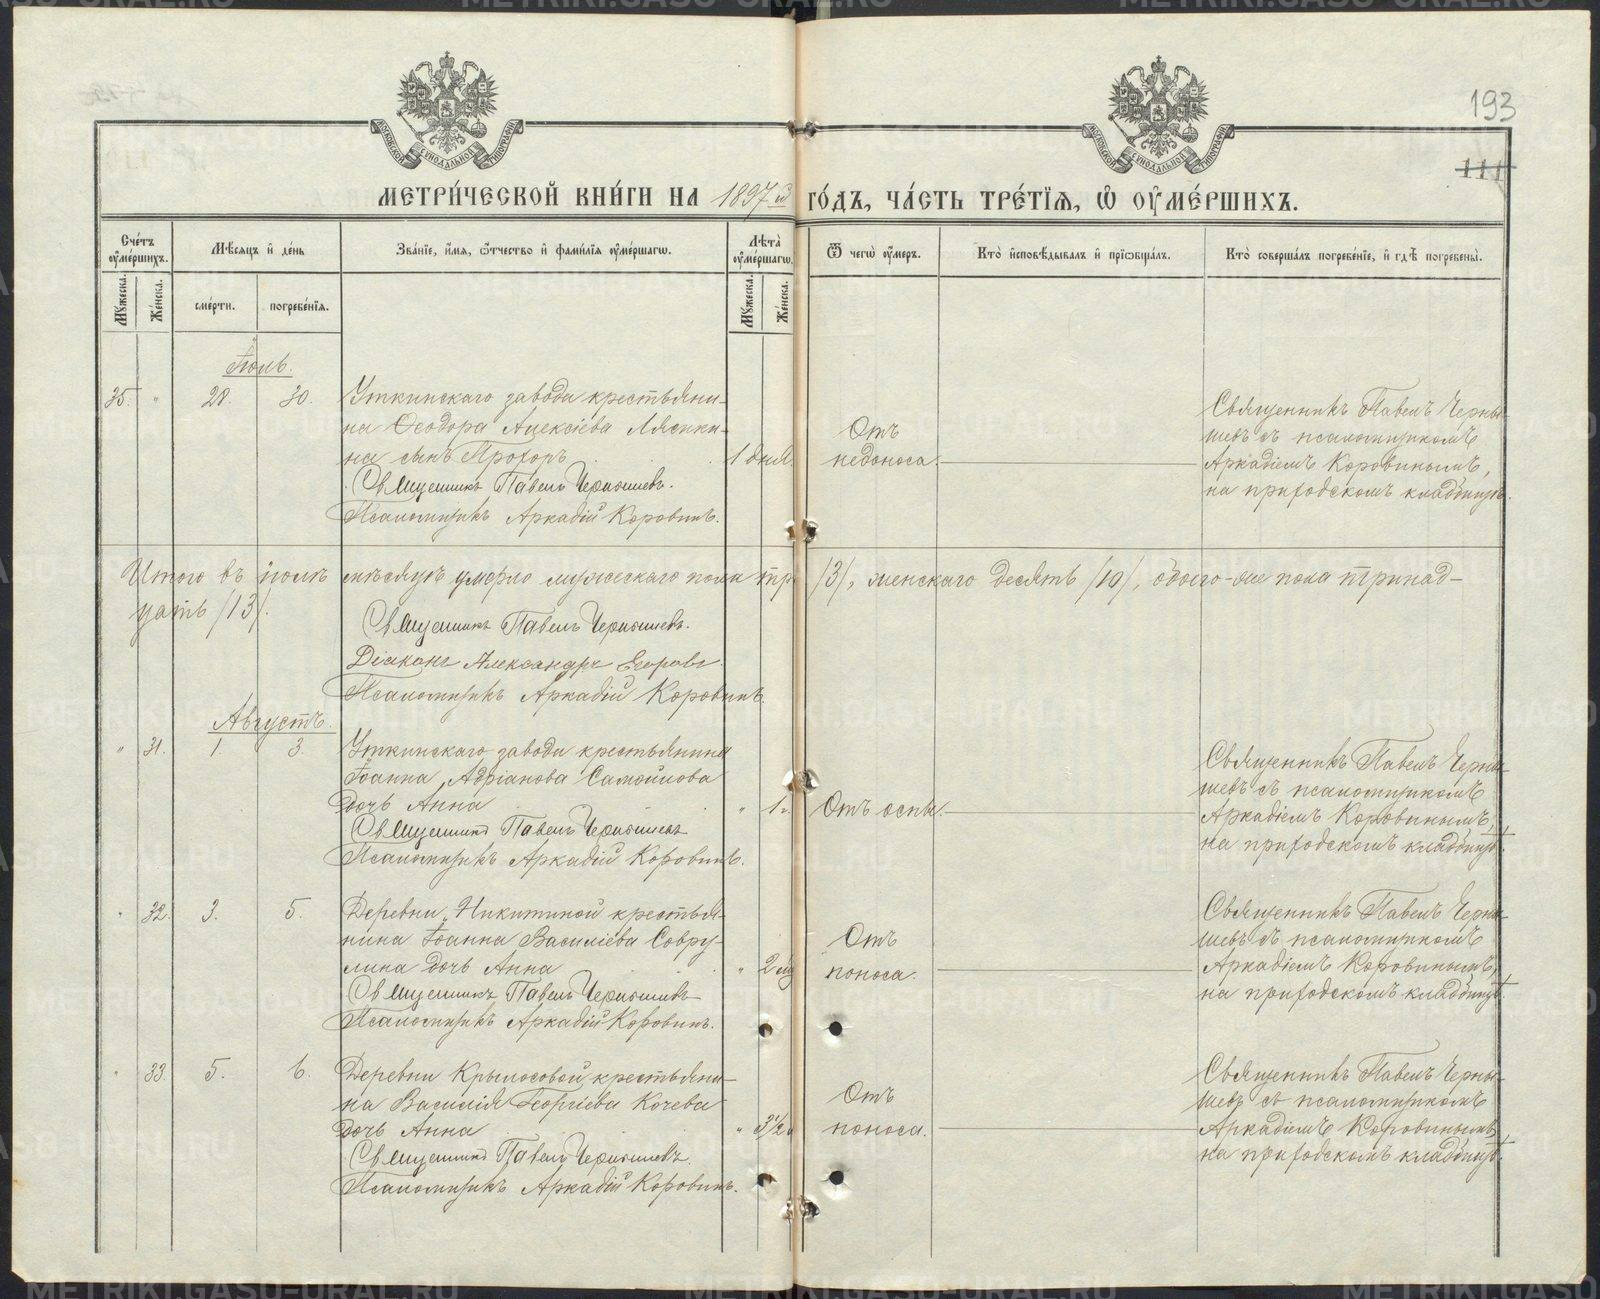 193
111
МОСКОВСКОЙ СѴНОДАЛЬНОЙ ТИПОГРАФІИ
МОСКОВСКОЙ СѴНОДАЛЬНОЙ ТИПОГРАФІИ
МЕТРИ́ЧЕСКОЙ КНИ́ГИ НА 1897й ГО́ДЪ, ЧА́СТЬ ТРЕ́ТЇѦ, Ѡ҆ ОУ҆МЕ́РШИХЪ.
Сче́тъ оу҆ме́ршихъ.
Мѣ́сѧцъ и҆ де́нь
Зва́нїе, и҆́мѧ, ѻ҆́тчество и҆ фами́лїѧ оу҆ме́ршагѡ.
Лѣ́та оу҆ме́ршагѡ.
Ѿ чегѡ̀ оу҆́меръ.
Кто̀ и҆сповѣ́дывалъ и҆ прїѡбща́лъ.
Кто̀ соверша́лъ погребе́нїе, и҆ гдѣ̀ погребены̀.
Мꙋ́жеска. Же́нска.
сме́рти. погребе́нїѧ.
Мꙋ́жеска. Же́нска.
Іюль.
35. " 28. 30. Уткинскаго завода крестьяни-
на Ѳеодора Алексіева Лясики-
на сынъ Прохоръ 1 дня.
Священникъ Павелъ Чернышевъ.
Псаломщикъ Аркадій Коровинъ.
Отъ
недоноса.
Священникъ Павелъ Черны-
шевъ съ псаломщикомъ
Аркадіемъ Коровинымъ,
на приходскомъ кладбищѣ.
Итого въ іюлѣ мѣсяцѣ умерло мужескаго пола три /3/, женскаго десять /10/, обоего-же пола тринад-
цать /13/.
Священникъ Павелъ Чернышевъ.
Діаконъ Александръ Егоровъ.
Псаломщикъ Аркадій Коровинъ.
Августъ.
" 31. 1. 3. Уткинскаго завода крестьянина
Іоанна Адріанова Самойлова
дочь Анна " 1 г.
Священникъ Павелъ Чернышевъ
Псаломщикъ Аркадій Коровинъ.
Отъ оспы.
Священникъ Павелъ Черны-
шевъ съ псаломщикомъ
Аркадіемъ Коровинымъ,
на приходскомъ кладбищѣ.
" 32. 3. 5. Деревни Никитиной крестья-
нина Іоанна Василіева Совру-
лина дочь Анна " 2
Священникъ Павелъ Чернышевъ
Псаломщикъ Аркадій Коровинъ.
Отъ
поноса.
Священникъ Павелъ Черны-
шевъ съ псаломщикомъ
Аркадіемъ Коровинымъ,
на приходскомъ кладбищѣ.
" 33. 5. 6. Деревни Крылосовой крестьяни-
на Василія Георгіева Кочева
дочь Анна " 3½
Священникъ Павелъ Чернышевъ.
Псаломщикъ Аркадій Коровинъ.
Отъ
поноса.
Священникъ Павелъ Черны-
шевъ съ псаломщикомъ
Аркадіемъ Коровинымъ,
на приходскомъ кладбищѣ.
METRIKI.GASO-URAL.RU